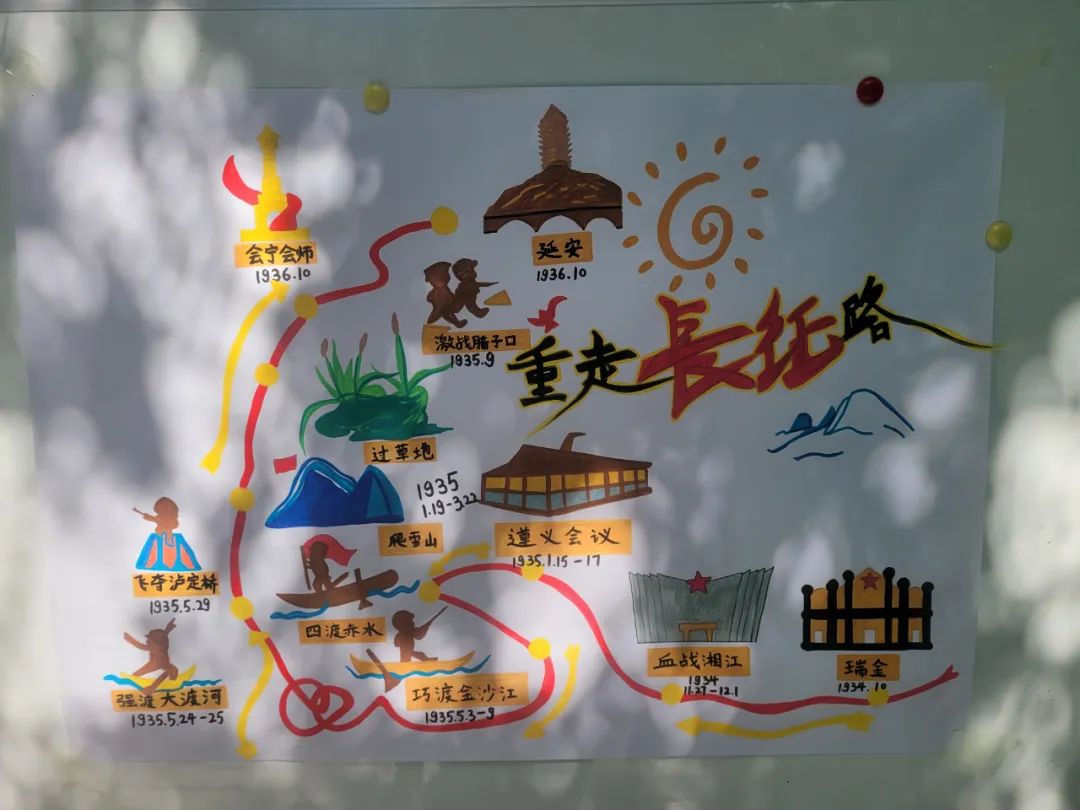 会宁会师
1936.10
延安
1936.10
激战腊子口
1935.9
重走長征路
过草地
爬雪山
1935
1.19-3.22
遵义会议
1935.1.15-17
飞夺泸定桥
1935.5.29
四渡赤水
强渡大渡河
1935.5.24-25
巧渡金沙江
1935.5.3-9
血战湘江
1934
11.27-12.1
瑞金
1934.10